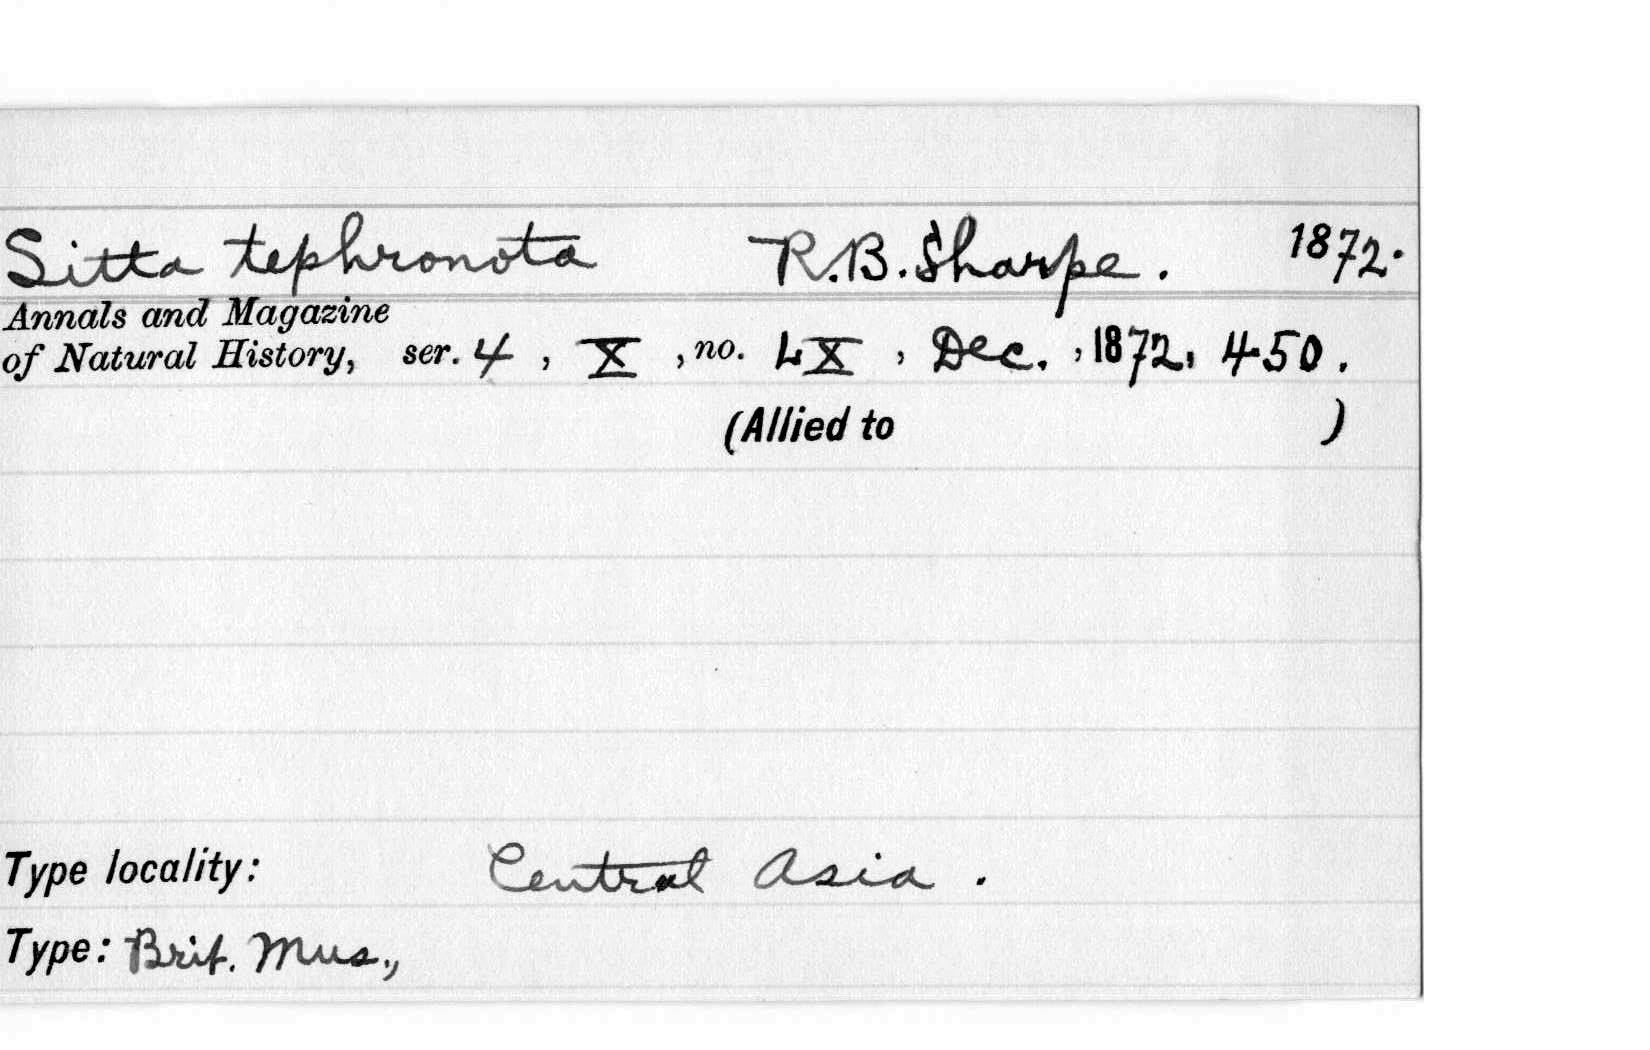 Sitta tephronota R.B. Sharpe. 1872.
Annals and Magazine
of Natural History, ser. 4, X, no. LX, Dec., 1872, 450.
(Allied to )
Type locality: Central Asia.
Type: Brit. Mus.,